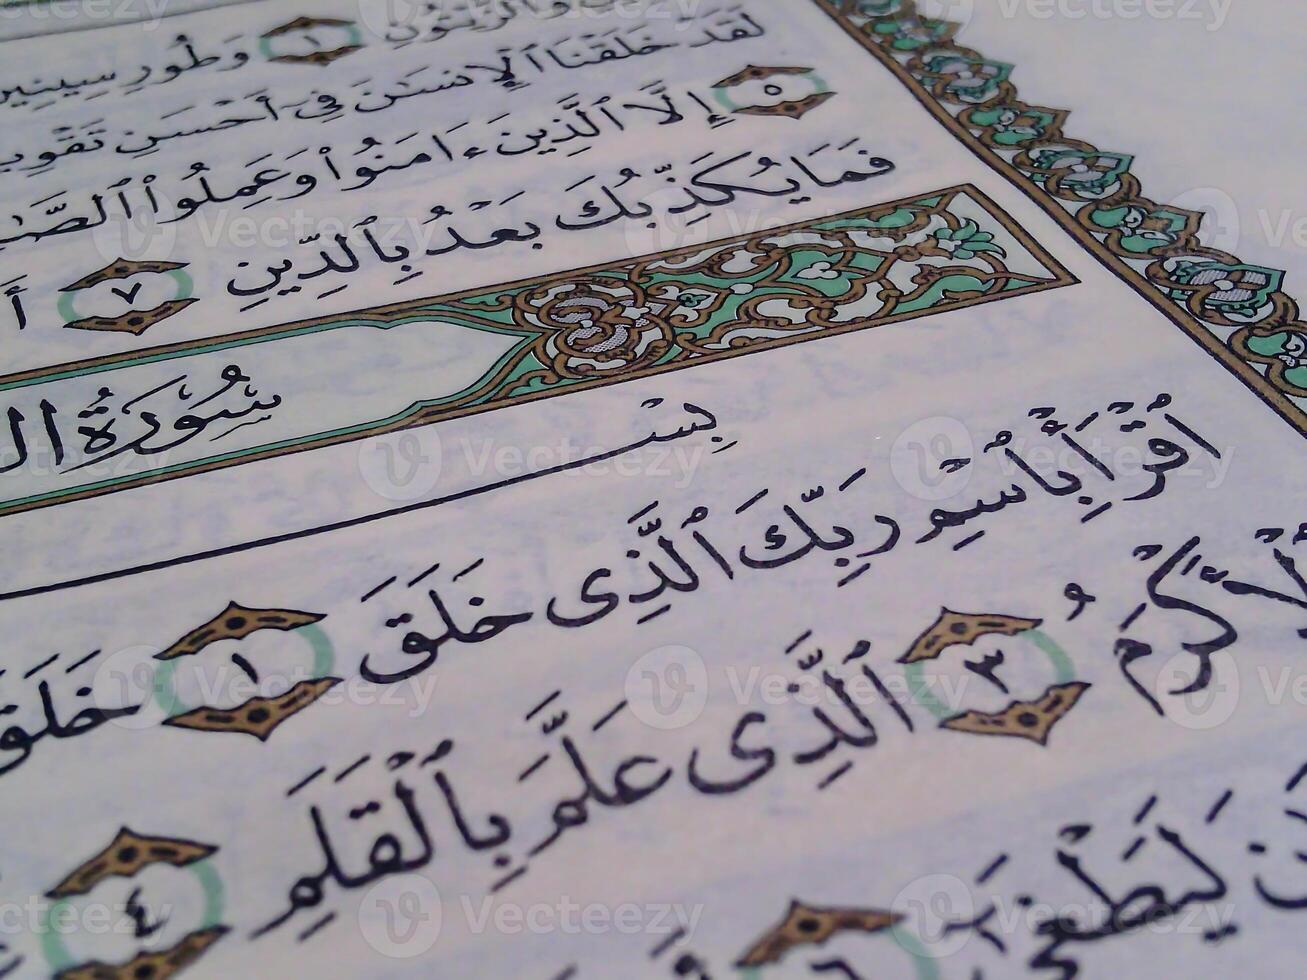 وَٱلزَّيۡتُونِ ١ وَطُورِ سِينِينَ
لَقَدۡ خَلَقۡنَا ٱلۡإِنسَٰنَ فِيٓ أَحۡسَنِ تَقۡوِي
٥ إِلَّا ٱلَّذِينَ ءَامَنُواْ وَعَمِلُواْ ٱلصَّٰ
فَمَا يُكَذِّبُكَ بَعۡدُ بِٱلدِّينِ ٧ أَ
سُورَةُ ال
بِسۡ
ٱقۡرَأۡ بِٱسۡمِ رَبِّكَ ٱلَّذِي خَلَقَ ١ خَلَقَ
ٱلۡأَكۡرَمُ ٣ ٱلَّذِي عَلَّمَ بِٱلۡقَلَمِ ٤
لَيَطۡغَىٰٓ ٦
Vecteezy